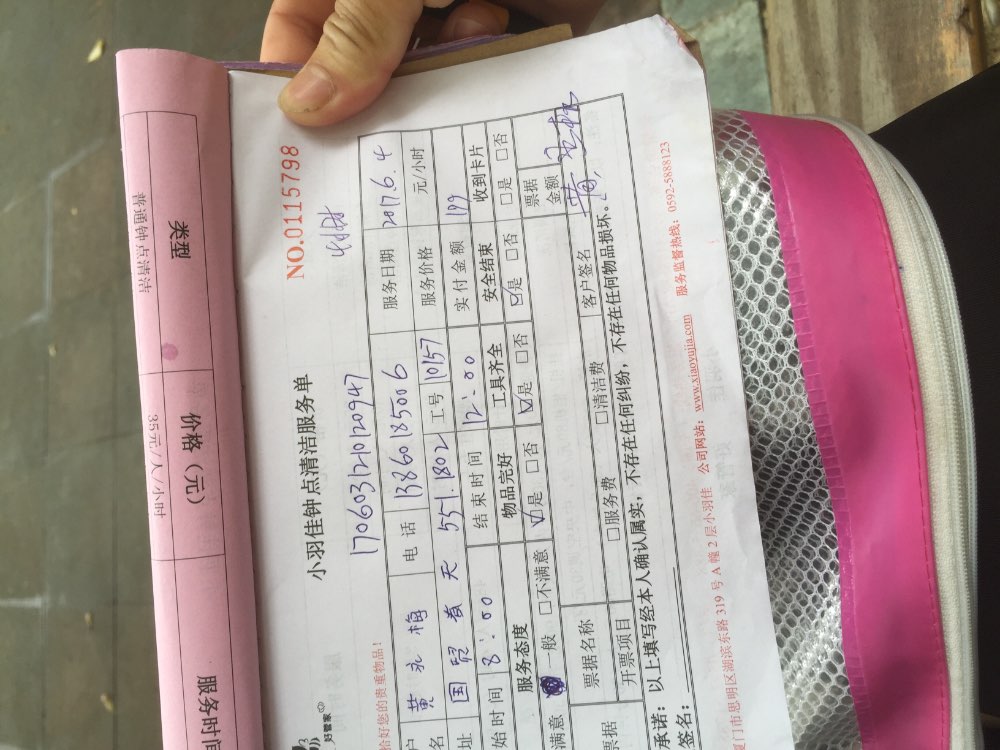 类型
价格（元）
服务时间
普通钟点清洁
35元/人/小时
NO.0115798
小羽佳钟点清洁服务单
好管家
17060312010120947
恰好您的贵重物品！
户 黄 梅 电 话 13860185006 服务日期 2017.6.4
名
址 国贸春天 551.1802 工号 10157 服务价格 元/小时
始时间 8:00 结束时间 12:00 实付金额 199
服务态度 物品完好 工具齐全 安全结束 收到卡片
满意 一般 □不满意 ☑是 □否 ☑是 □否 ☑是 □否 □是 □否
票据 票据名称 票据金额
开票项目 □服务费 □清洁费 客户签名 黄
承诺：以上填写经本人确认属实，不存在任何纠纷，不存在任何物品损坏。
签名：
厦门市思明区湖滨东路 319 号 A 幢 2 层小羽佳 公司网站：www.xiaoyujia.com 服务监督热线：0592-5888123